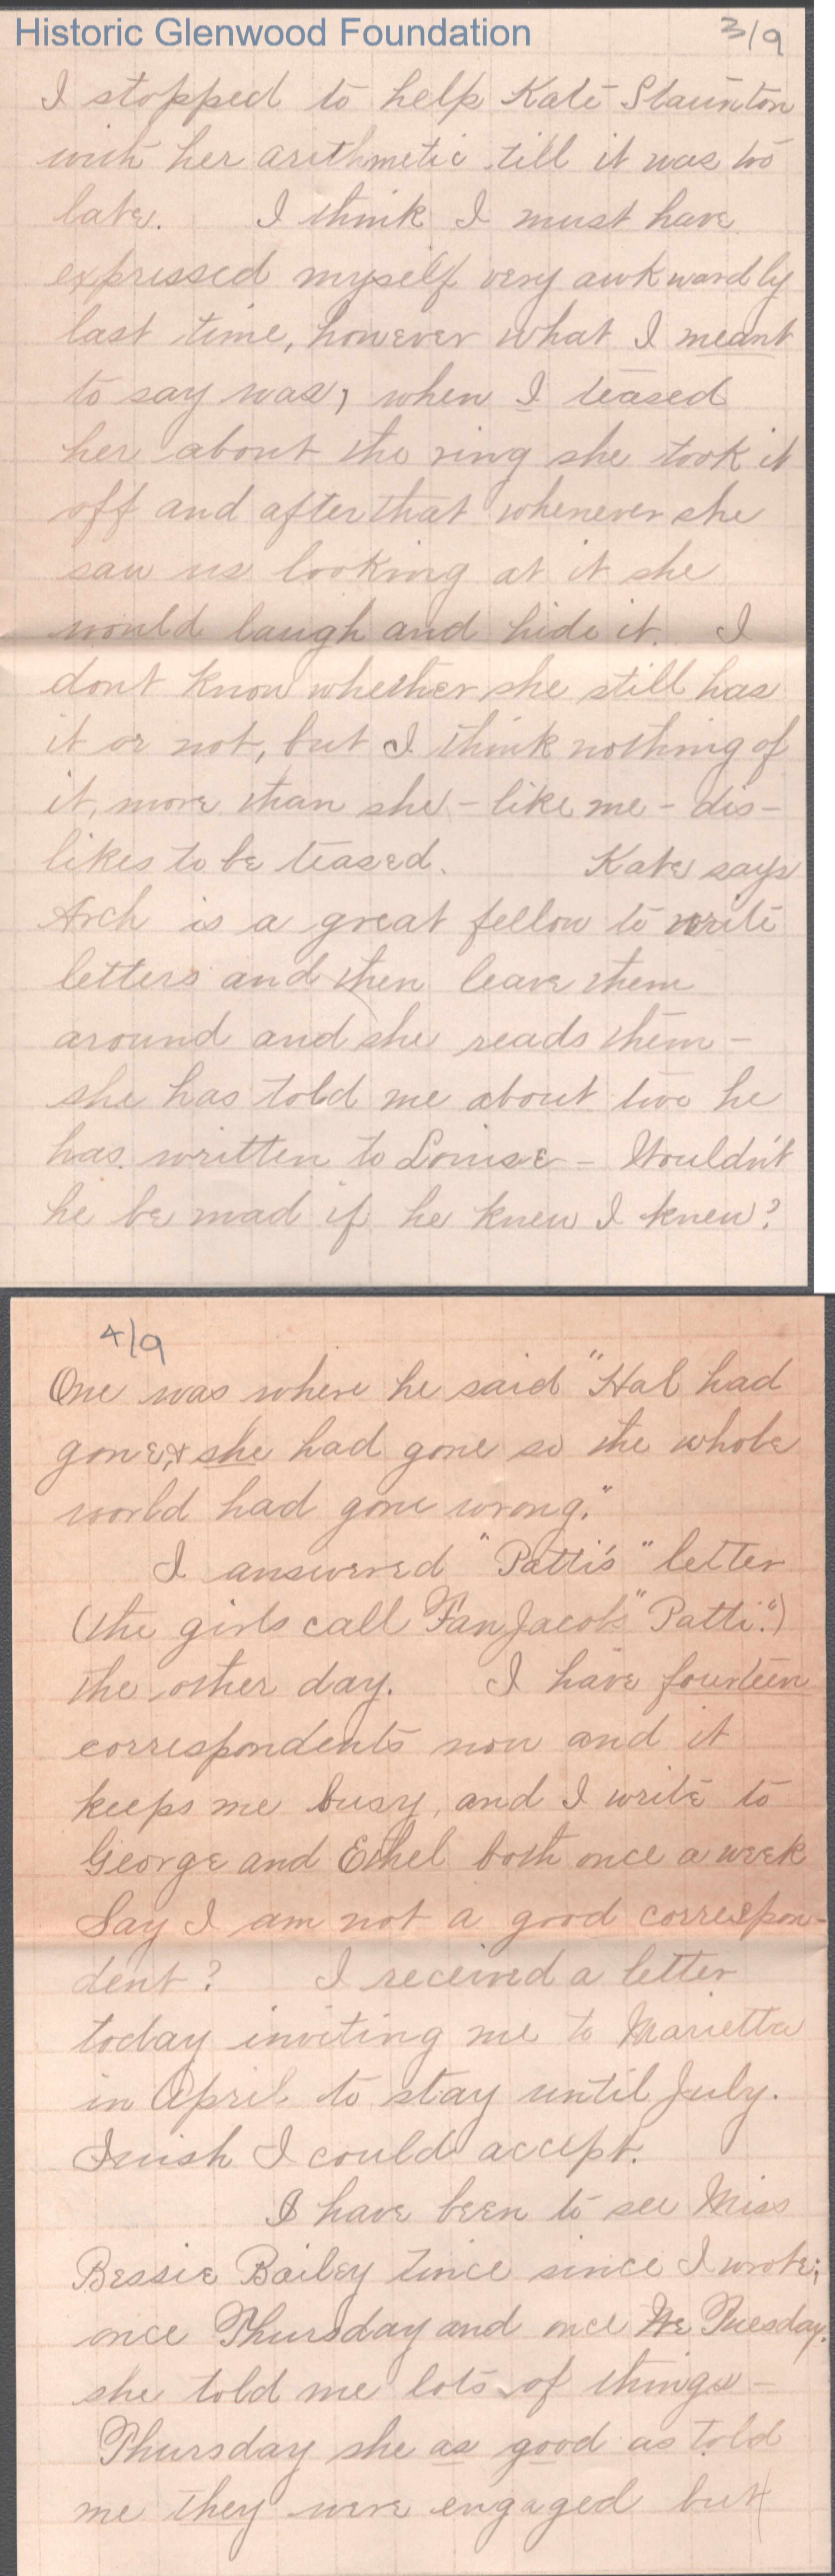 Historic Glenwood Foundation
3/9
I stopped to help Kate Staunton
with her arithmetic till it was too
late. I think I must have
expressed myself very awkwardly
last time, however what I meant
to say was, when I teased
her about the ring she took it
off and after that whenever she
saw us looking at it she
would laugh and hide it. I
dont know whether she still has
it or not, but I think nothing of
it, more than she - like me - dis-
likes to be teased. Kate says
Arch is a great fellow to write
letters and then leave them
around and she reads them -
she has told me about two he
has written to Louise - Wouldn't
he be mad if he knew I knew?
4/9
One was where he said "Hal had
gone, & she had gone so the whole
world had gone wrong."
I answered "Patti's" letter
(the girls call Fan Jacobs "Patti.")
the other day. I have fourteen
correspondents now and it
keeps me busy, and I write to
George and Ethel both once a week
Say I am not a good correspon-
dent? I received a letter
today inviting me to Marietta
in April to stay until July.
I wish I could accept.
I have been to see Miss
Bessie Bailey twice since I wrote;
once Thursday and once We Tuesday.
she told me lots of things -
Thursday she as good as told
me they were engaged but